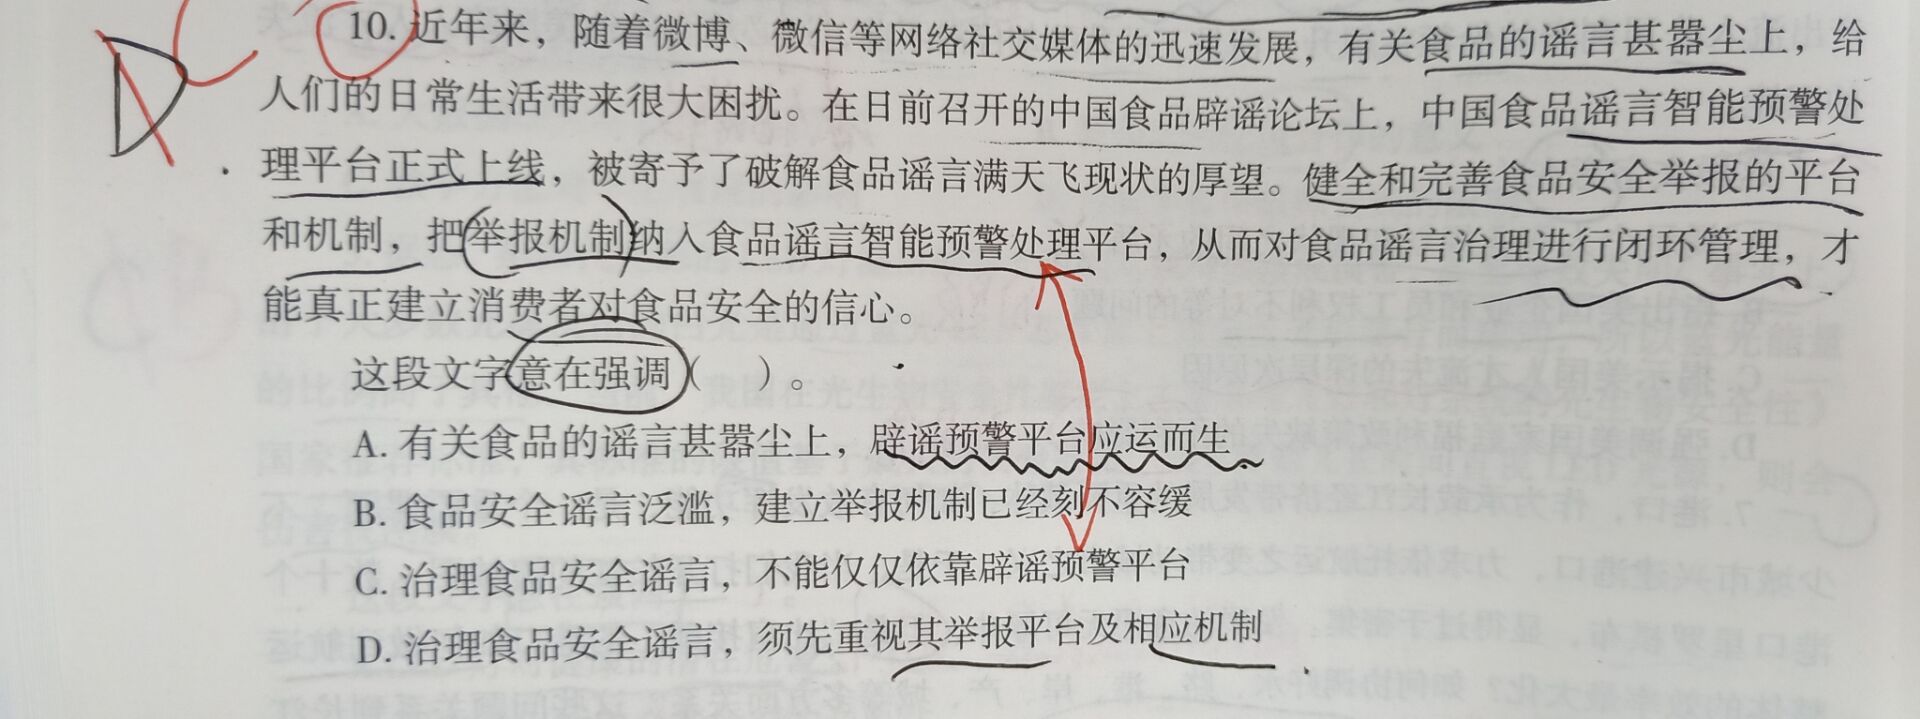 D C
10. 近年来，随着微博、微信等网络社交媒体的迅速发展，有关食品的谣言甚嚣尘上，给
人们的日常生活带来很大困扰。在日前召开的中国食品辟谣论坛上，中国食品谣言智能预警处
理平台正式上线，被寄予了破解食品谣言满天飞现状的厚望。健全和完善食品安全举报的平台
和机制，把举报机制纳入食品谣言智能预警处理平台，从而对食品谣言治理进行闭环管理，才
能真正建立消费者对食品安全的信心。
这段文字意在强调（　　）。
A. 有关食品的谣言甚嚣尘上，辟谣预警平台应运而生
B. 食品安全谣言泛滥，建立举报机制已经刻不容缓
C. 治理食品安全谣言，不能仅仅依靠辟谣预警平台
D. 治理食品安全谣言，须先重视其举报平台及相应机制